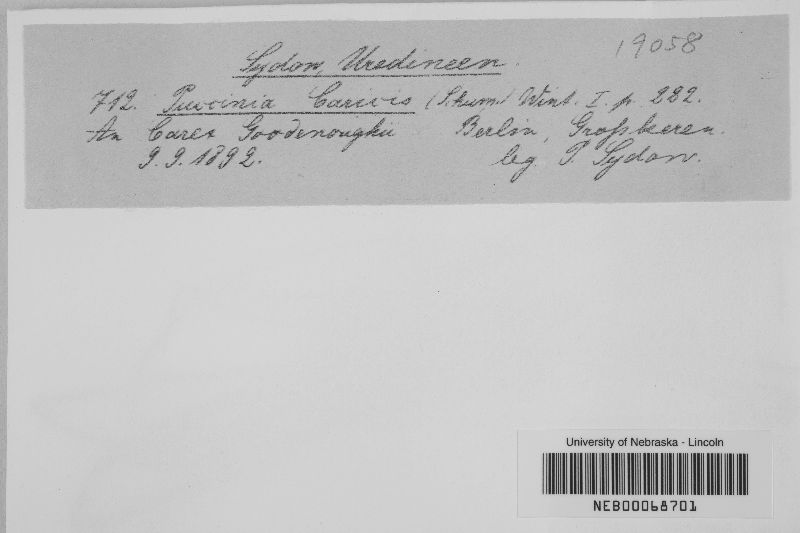 19058
Sydow, Uredineen.
712. Puccinia Caricis (Schum.) Wint. I. p. 222.
An Carex Goodenoughii Berlin, Großbeeren.
9. 9. 1892. leg. P. Sydow.
University of Nebraska - Lincoln
NEB00068701